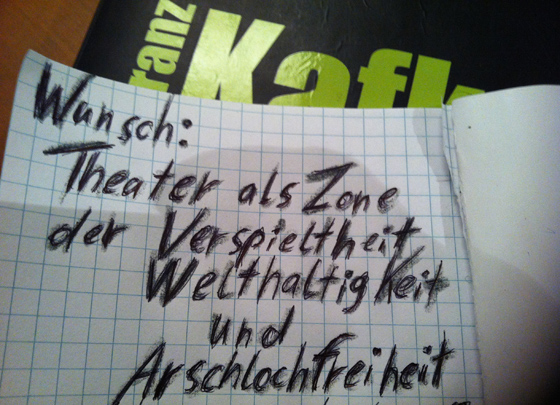 ranz
Kafk
Wunsch:
Theater als Zone
der Verspieltheit
Welthaltigkeit
und
Arschlochfreiheit